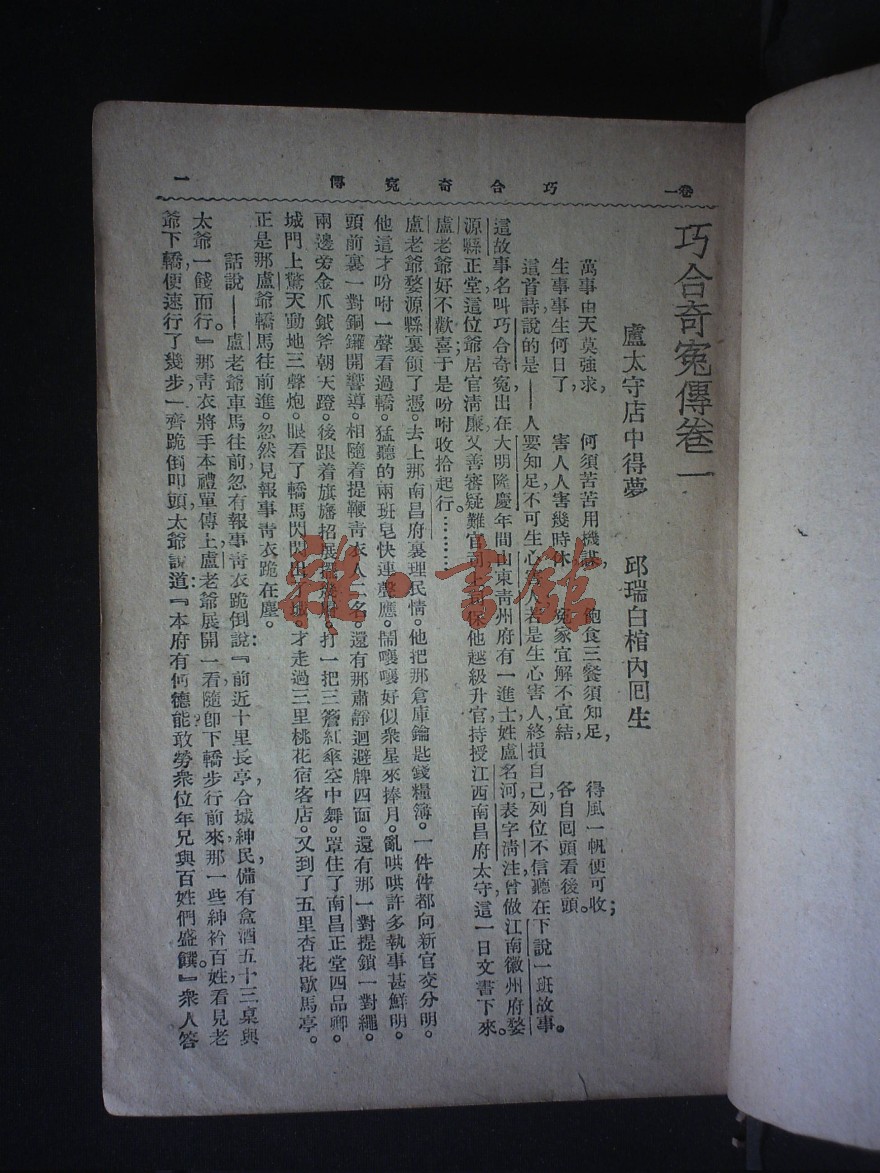 卷一
巧合奇寃傳
一
巧合奇寃傳卷一
盧太守店中得夢　邱瑞白棺內回生
萬事由天莫強求，何須苦苦用機謀，飽食三餐須知足，得風一帆便可收；
生事事生何日了，害人人害幾時休，寃家宜解不宜結，各自回頭看後頭。
這首詩說的是——人要知足，不可生心害人，若是生心害人，終損自己，列位不信，聽在下說一班故事。
這故事名叫巧合奇寃，出在大明隆慶年間，山東靑州府有一進士，姓盧名河，表字淸注，曾做江南徽州府婺
源縣正堂，這位爺居官淸廉，又善審疑難官司，上司保他越級升官，持授江西南昌府太守，這一日文書下來。
盧老爺好不歡喜；于是吩咐收拾起行。………
盧老爺婺源縣裏領了憑。去上那南昌府裏理民情。他把那倉庫鑰匙錢糧簿。一件件都向新官交分明。
他這才吩咐一聲看過轎。猛聽的兩班皂快連聲應。鬧嚷嚷好似衆星來捧月。亂哄哄許多執事甚鮮明。
頭前裏一對銅鑼開響導。相隨着提鞭靑衣人二名。還有那肅靜迴避牌四面。還有那一對提鎖一對繩。
兩邊旁金爪鉞斧朝天蹬。後跟着旗旛招展擺。打一把三簷紅傘空中舞。罩住了南昌正堂四品卿。
城門上驚天動地三聲炮。眼看了轎馬閃閃出了城。才走過三里桃花宿客店。又到了五里杏花歇馬亭。
正是那盧爺轎馬往前進。忽然見報事靑衣跪在塵。
話說——盧老爺車馬往前，忽有報事靑衣跪倒說：『前近十里長亭，合城紳民，備有盒酒五十三桌，與
太爺一餞而行。』那靑衣將手本禮單傳上，盧老爺展開一看，隨卽下轎步行前來，那一些紳衿百姓，看見老
爺下轎，便速行了幾步，一齊跪倒叩頭，太爺說道：『本府有何德能，敢勞衆位年兄與百姓們盛饌。』衆人答
雜·書館